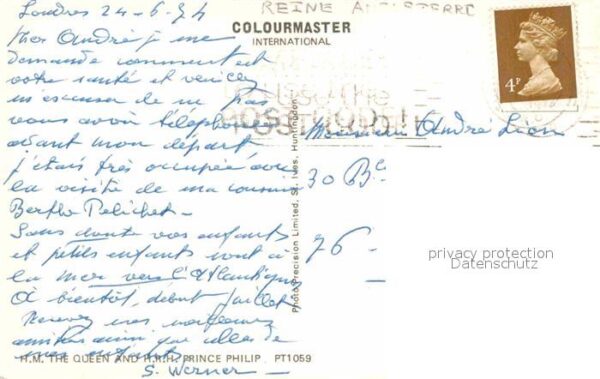 Londres 24-6-74
REINE ANGLETERRE
COLOURMASTER
INTERNATIONAL
Mon André je me
demande comment est
votre santé et veuillez
m'excuser de ne pas
vous avoir téléphoné
avant mon départ
j'étais très occupée avec
la visite de ma cousine
Bertha Pelichet -
Sans doute vos enfants
et petits enfants sont à
la mer vers l'Atlantique
A bientôt, début juillet
Recevez mes meilleures
amitiés ainsi que celles de
mes enfants
S. Werner
4P
Use the
Post Code
Monsieur André Lion
30 Bd
76
Photo Precision Limited, St. Ives, Huntingdon
privacy protection
Datenschutz
H.M. THE QUEEN AND H.R.H. PRINCE PHILIP PT1059